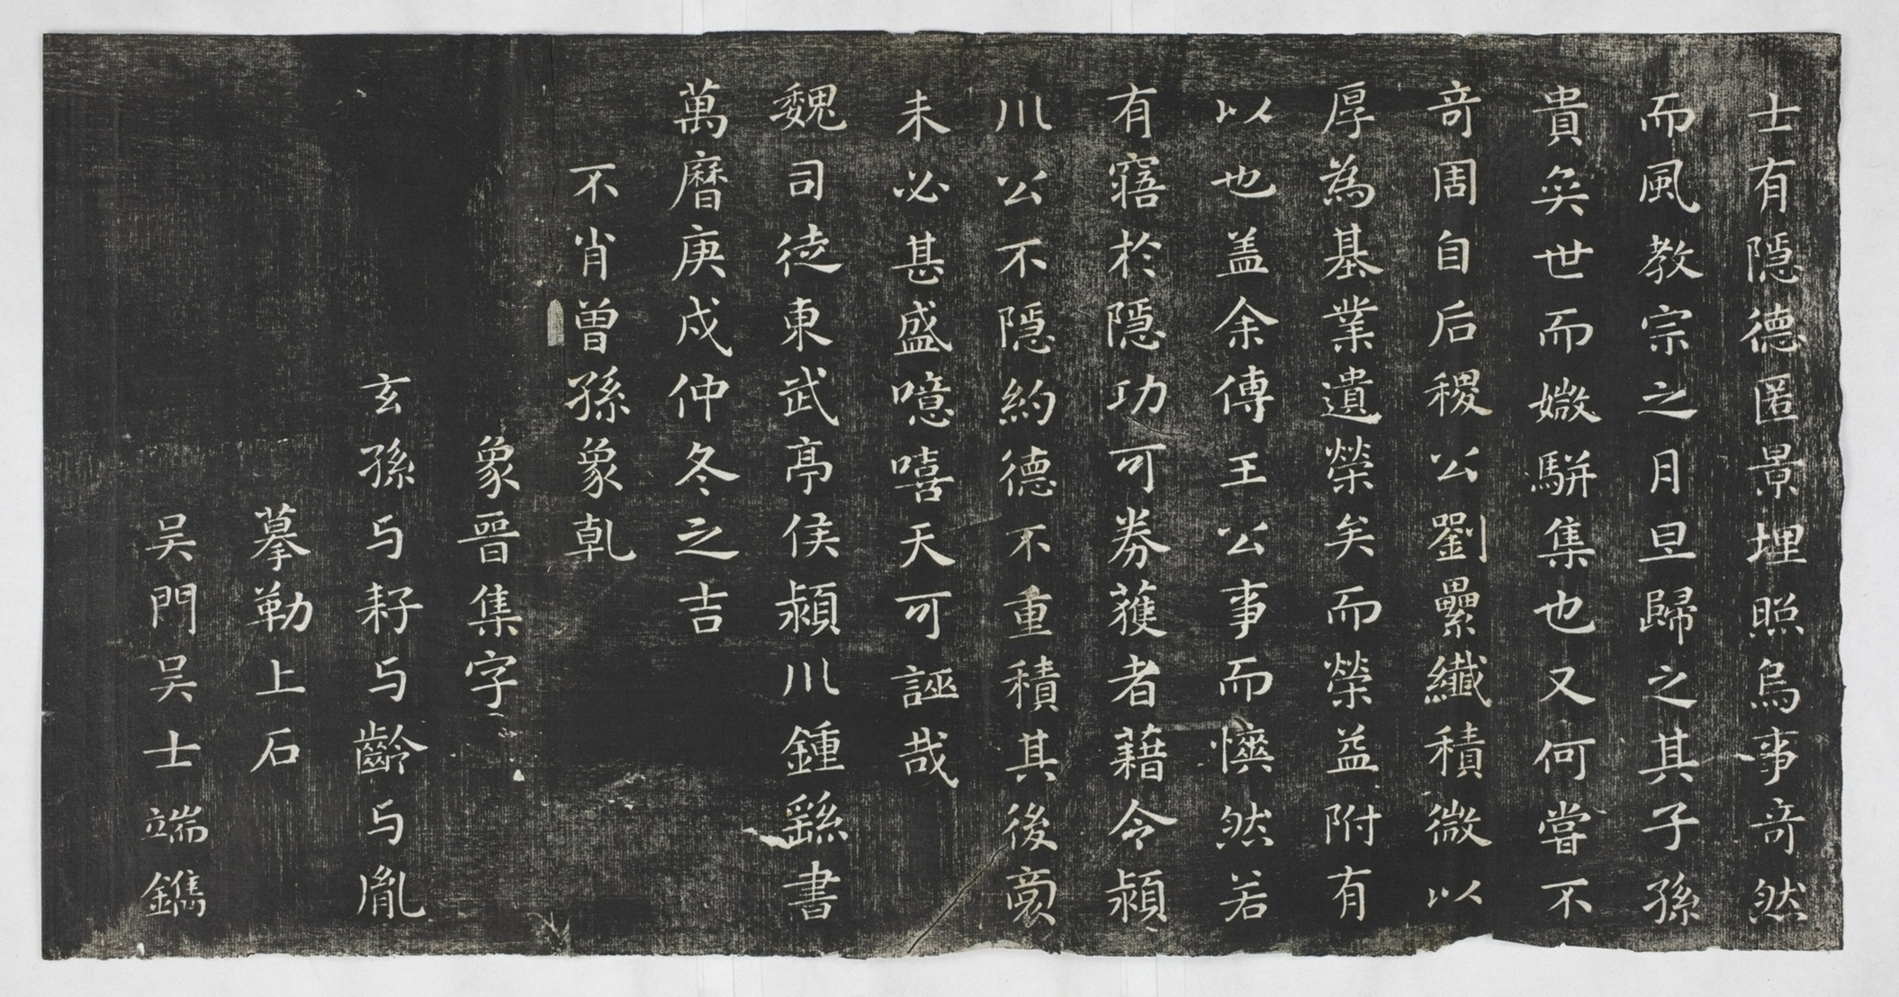 士有隱德匿景埋照烏事奇然
而風教宗之月旦歸之其子孫
貴矣世而媺駢集也又何嘗不
奇周自后稷公劉纍纖積微以
厚為基業遺榮矣而榮益附有
以也盖余傳王公事而懊然若
有寤於隱功可券獲者藉令潁
川公不隱約德不重積其後裔
未必甚盛噫嘻天可誣哉
魏司徒東武亭侯潁川鍾繇書
萬曆庚戌仲冬之吉
不肖曾孫象乹
象晉集字
玄孫与耔与齡与胤
摹勒上石
吴門吴士端鐫